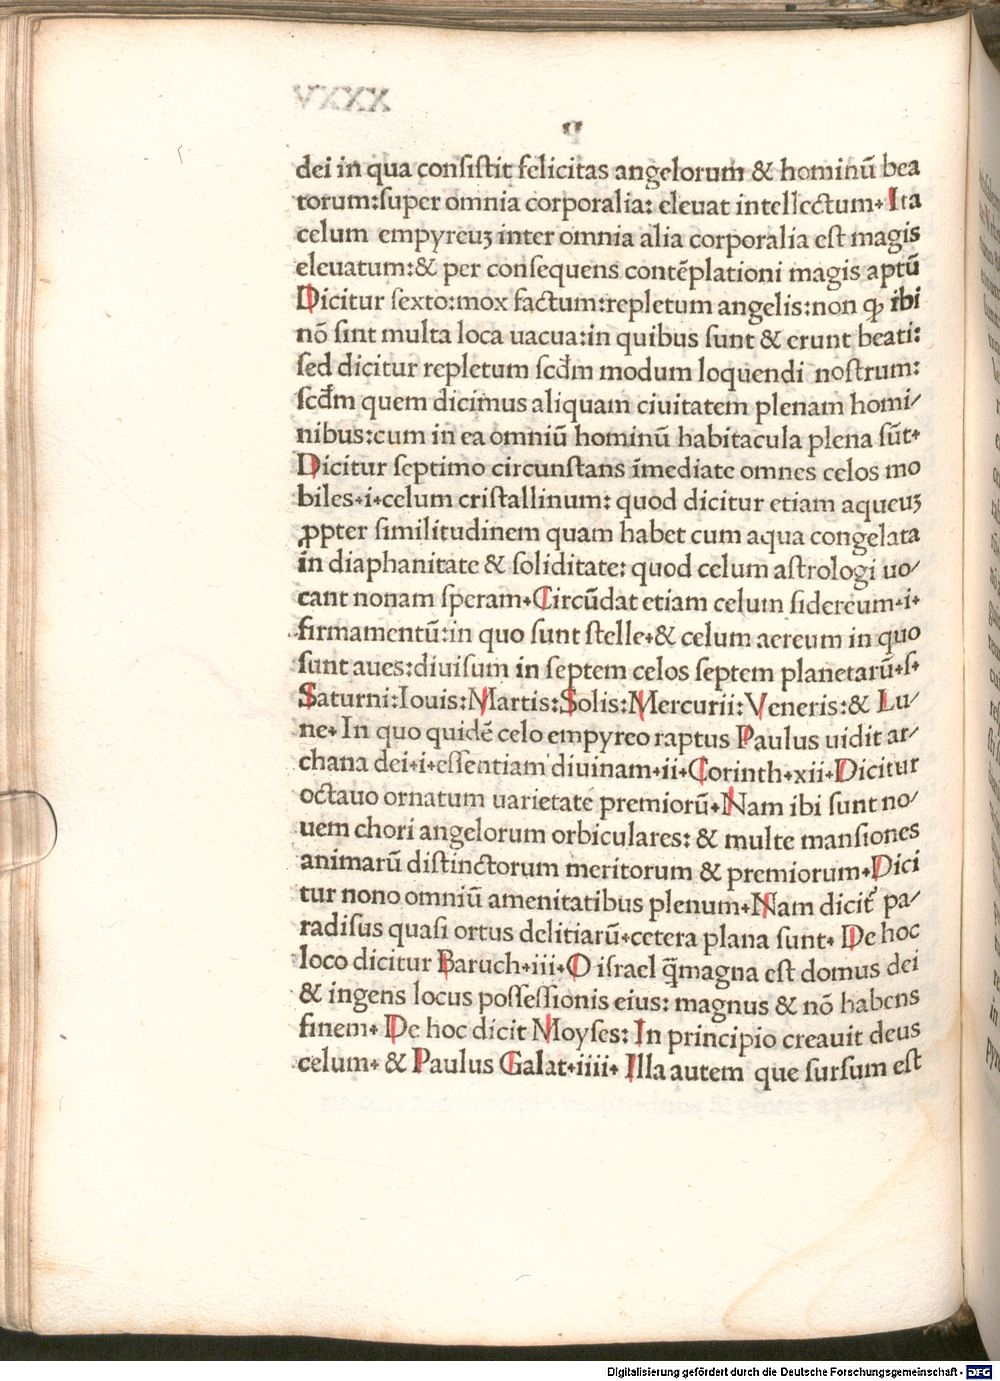 dei in qua conſiſtit felicitas angelorum & hominū bea
torum:ſuper omnia corporalia: eleuat intellectum. Ita
celum empyreuꝫ inter omnia alia corporalia eſt magis
eleuatum:& per conſequens contēplationi magis aptū
Dicitur ſexto:mox factum:repletum angelis:non ꝙ ibi
nō ſint multa loca uacua:in quibus ſunt & erunt beati:
ſed dicitur repletum ſcd̄m modum loquendi noſtrum:
ſcd̄m quem dicimus aliquam ciuitatem plenam homi/
nibus:cum in ea omniū hominū habitacula plena ſūt.
Dicitur ſeptimo circunſtans īmediate omnes celos mo
biles.i.celum criſtallinum: quod dicitur etiam aqueuꝫ
ꝓpter ſimilitudinem quam habet cum aqua congelata
in diaphanitate & ſoliditate: quod celum aſtrologi uo/
cant nonam ſperam. Circūdat etiam celum ſidereum.i.
firmamentū:in quo ſunt ſtelle.& celum aereum in quo
ſunt aues:diuiſum in ſeptem celos ſeptem planetarū.ſ.
Saturni:Iouis:Martis:Solis:Mercurii:Veneris:& Lu/
ne. In quo quidē celo empyreo raptus Paulus uidit ar/
chana dei.i.eſſentiam diuinam.ii.Corinth.xii.Dicitur
octauo ornatum uarietate premiorū.Nam ibi ſunt no/
uem chori angelorum orbiculares: & multe manſiones
animarū diſtinctorum meritorum & premiorum.Dici
tur nono omniū amenitatibus plenum.Nam dicit᷑ pa/
radiſus quaſi ortus delitiarū.cetera plana ſunt. De hoc
loco dicitur Baruch.iii.O iſrael q̄magna eſt domus dei
& ingens locus poſſeſſionis eius: magnus & nō habens
finem. De hoc dicit Moyſes: In principio creauit deus
celum. & Paulus Galat.iiii. Illa autem que ſurſum eſt
Digitalisierung gefördert durch die Deutsche Forschungsgemeinschaft - DFG